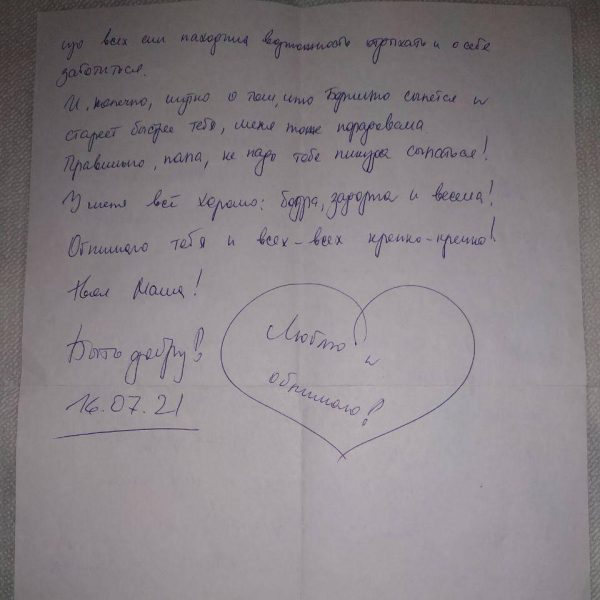 изо всех сил находить возможность отдыхать и о себе
заботиться.
И, конечно, шутка о том, что сыпется и
стареет быстрее тебя, меня тоже порадовала.
Правильно, папа, не надо тебе никуда сыпаться!
У меня всё хорошо: бодра, задорна и весела!
Обнимаю тебя и всех-всех крепко-крепко!
Твоя Маша!
Быть добру!
16.07.21
Люблю и
обнимаю!